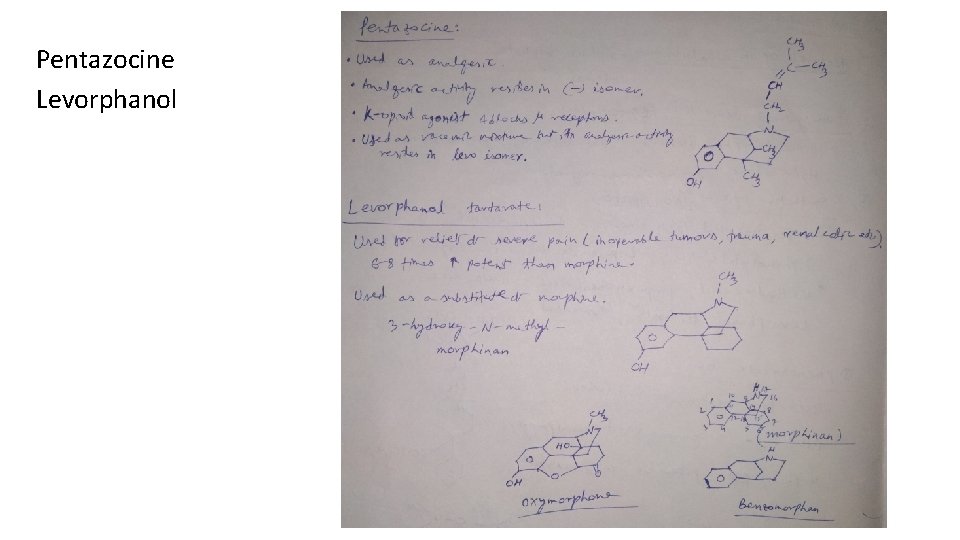 Pentazocine
Levorphanol
Pentazocine:
• Used as analgesic.
• Analgesic activity resides in (-) isomer.
• K-opioid agonist & blocks µ receptors.
• Used as racemic mixture but its analgesic activity
resides in levo isomer.
CH3
C-CH3
CH
CH2
N
CH3
CH3
OH
Levorphanol tartarate:
Used for relief of severe pain (inoperable tumours, trauma, renal colic etc).
6-8 times ↑ potent than morphine.
Used as a substitute of morphine.
3-hydroxy-N-methyl-
morphinan
CH3
N
OH
CH3
N
HO
O
O
OH
oxymorphone
H
N
(morphinan)
H
N
Benzomorphan